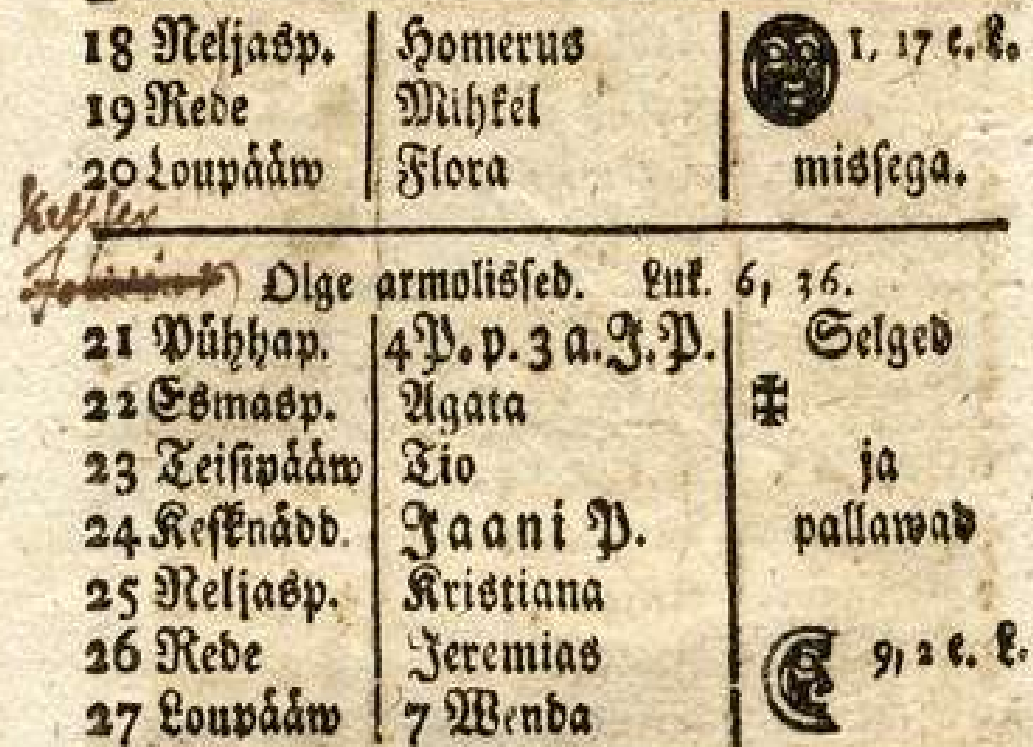 18 Neljasp. Homerus 1, 17 e. L.
19 Rede Mihkel
20 Loupääw Flora missega.
Olge armolissed. Luk. 6, 36.
21 Pühhap. 4 P. p. 3 a. J. P. Selged
22 Esmasp. Agata
23 Teisipääw Tio ja
24 Kesknädd. Jaani P. pallawad
25 Neljasp. Kristiana
26 Rede Jeremias 9, 2 e. L.
27 Loupääw 7 Wenda